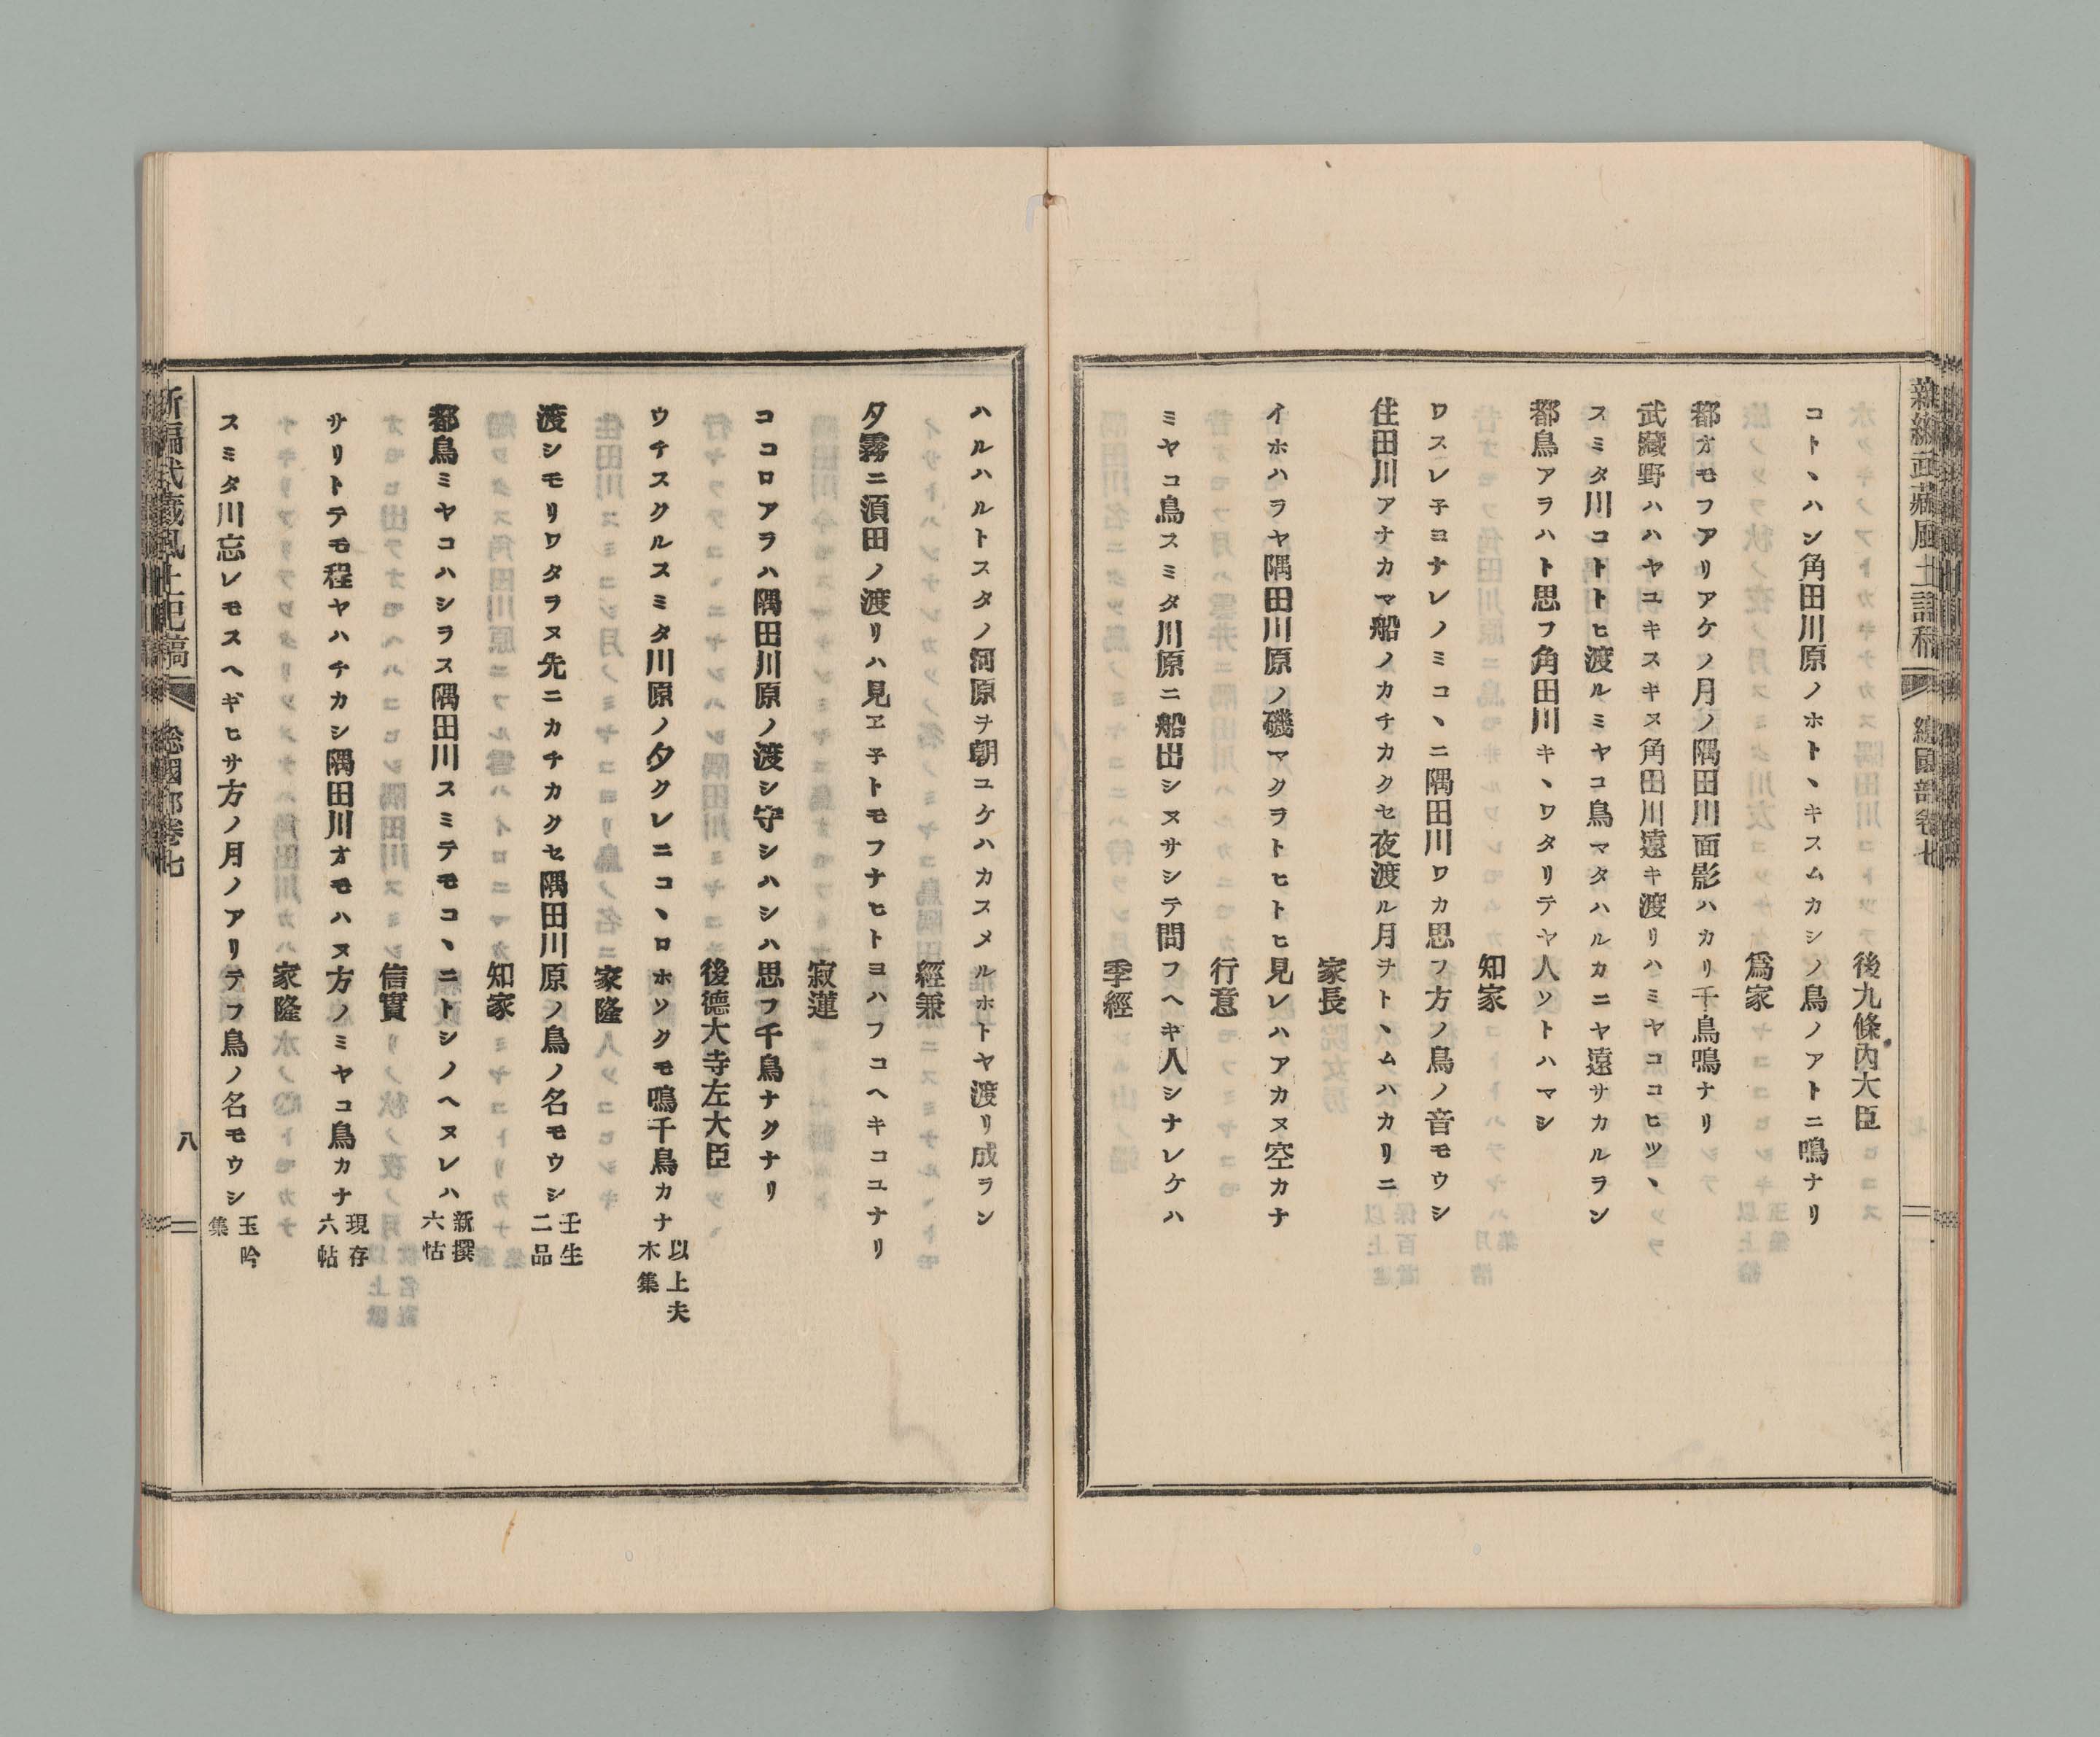 新編武藏風土記稿 總國部卷七
後九條內大臣
コトヽハン角田川原ノホトヽキスムカシノ鳥ノアトニ鳴ナリ
爲家
都オモフアリアケノ月ノ隅田川面影ハカリ千鳥鳴ナリ
武藏野ハハヤユキスキヌ角田川遠キ渡リハミヤコヒツヽ
スミタ川コトトヒ渡ルミヤコ鳥マタハルカニヤ遠サカルラン
都鳥アラハト思フ角田川キヽワタリテヤ人ツトハマシ
知家
ワスレ子ヨナレノミコヽニ隅田川ワカ思フ方ノ鳥ノ音モウシ
住田川アナカマ船ノカチカクセ夜渡ル月ヲトヽムハカリニ
家長
イホハラヤ隅田川原ノ磯マクラトヒトヒ見レハアカヌ空カナ
行意
ミヤコ鳥スミタ川原ニ船出シヌサシテ問フヘキ人シナレケハ
季經
ハルハルトスタノ河原ヲ朝ユケハカスメルホトヤ渡リ成ラン
經兼
夕霧ニ須田ノ渡リハ見ヱ子トモフナヒトヨハフコヘキコユナリ
寂蓮
ココロアラハ隅田川原ノ渡シ守シハシハ思フ千鳥ナクナリ
後德大寺左大臣
ウチスクルスミタ川原ノ夕クレニコヽロホソクモ鳴千鳥カナ 以上夫木集
家隆
渡シモリワタラヌ先ニカチカクセ隅田川原ノ鳥ノ名モウシ 壬生二品
知家
都鳥ミヤコハシラス隅田川スミテモコヽニトシノヘヌレハ 新撰六帖
信實
サリトテモ程ヤハチカシ隅田川オモハヌ方ノミヤコ鳥カナ 現存六帖
家隆
スミタ川忘レモスヘギヒサ方ノ月ノアリテフ鳥ノ名モウシ 玉吟集
新編武藏風土記稿 總國部卷七 八